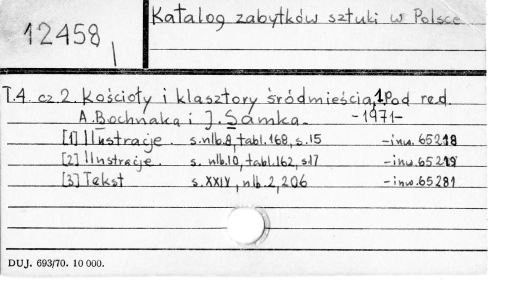 Katalog zabytków sztuki w Polsce
12458
T.4. cz.2. Kościoły i klasztory śródmieścia, 1. Pod red.
A. Bochnaka i J. Samka. -1971-
[1] Ilustracje. s.nlb.8, tabl.168, s.15 -inw.65218
[2] Ilustracje. s. nlb.10, tabl.162, s17 -inw.65219
[3] Tekst s.XXIV, nlb.2, 206 -inw.65281
DUJ. 693/70. 10 000.